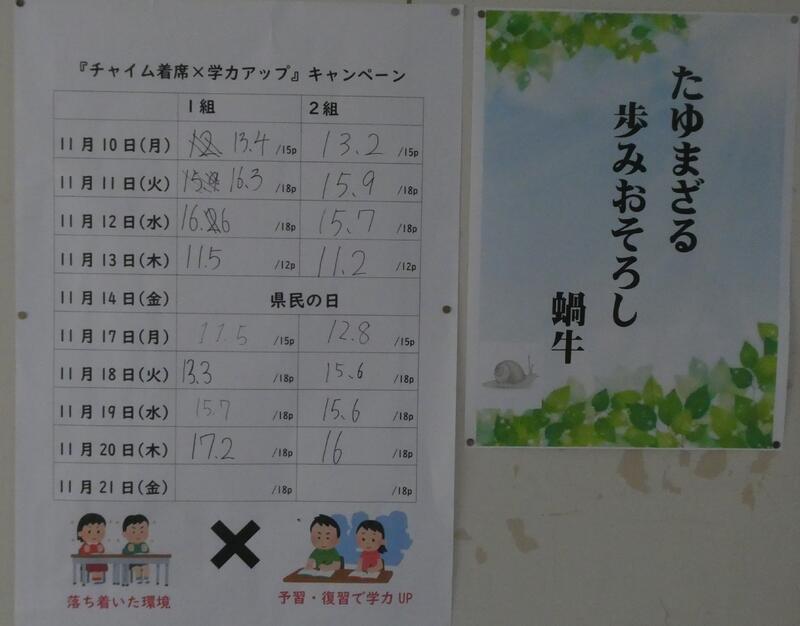 『チャイム着席×学力アップ』キャンペーン
1組 2組
11月10日(月) 13.4 /15p 13.2 /15p
11月11日(火) 16.3 /18p 15.9 /18p
11月12日(水) /18p 15.7 /18p
11月13日(木) 11.5 /12p 11.2 /12p
11月14日(金) 県民の日
11月17日(月) /15p 12.8 /15p
11月18日(火) 13.3 /18p 15.6 /18p
11月19日(水) 15.7 /18p 15.6 /18p
11月20日(木) 17.2 /18p 16 /18p
11月21日(金) /18p /18p
落ち着いた環境
×
予習・復習で学力UP
たゆまざる
歩みおそろし
蝸牛